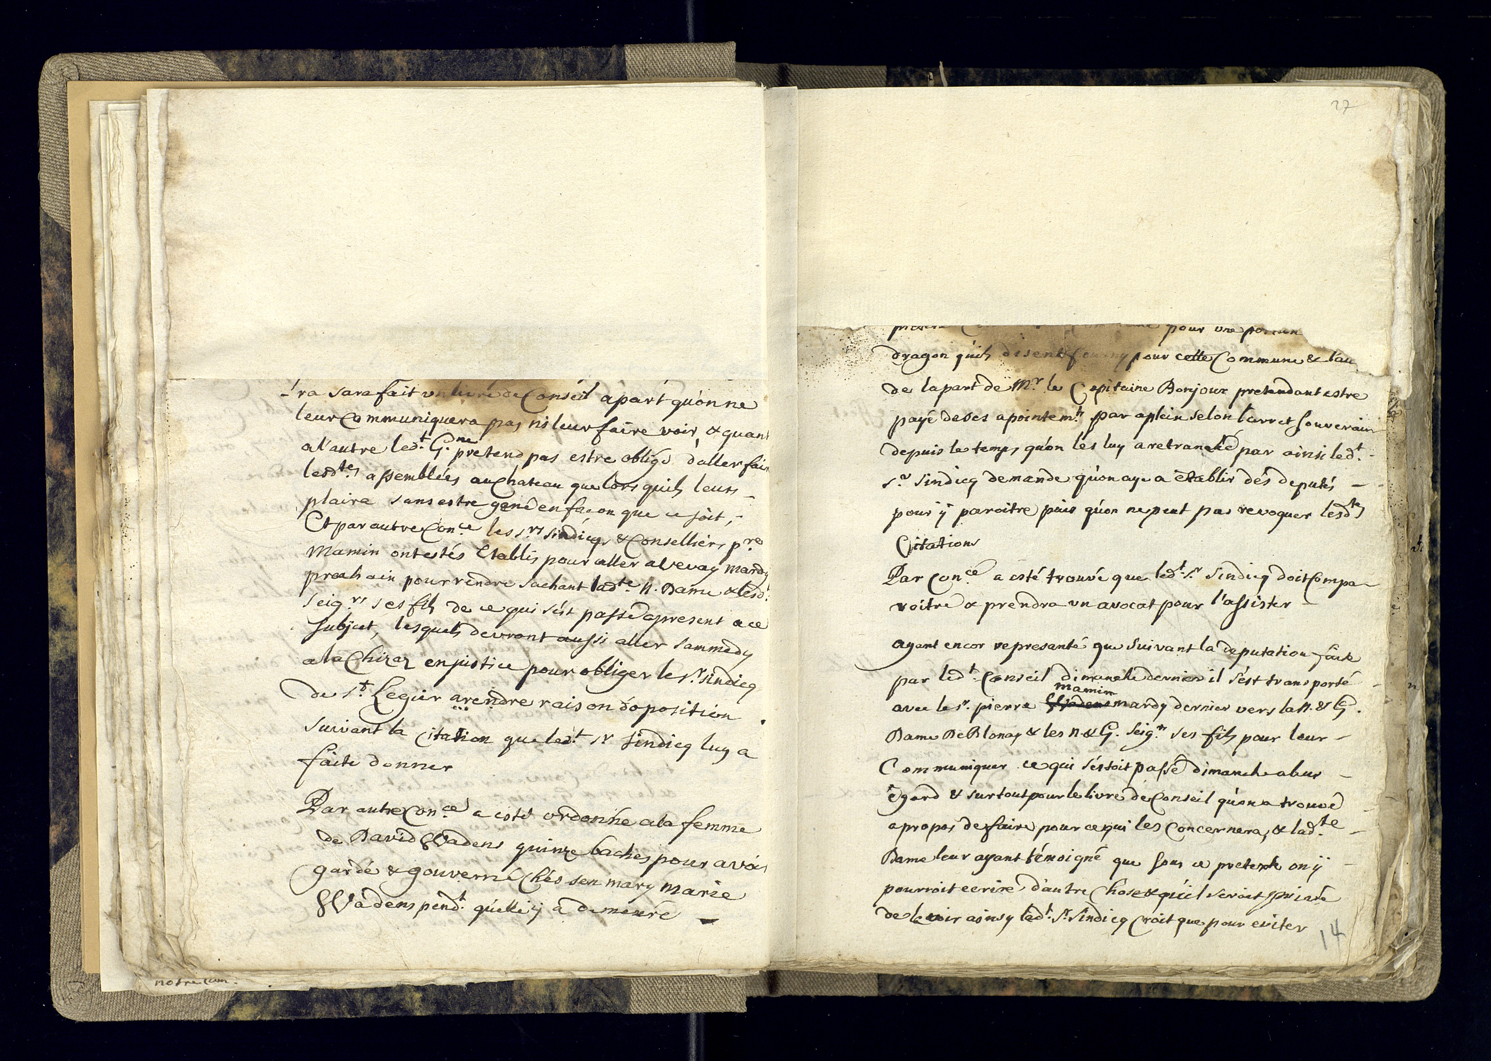 tra sara fait un livre de Conseil apart quon ne
leur communiquera pas ni leur faire voir, & quant
a l'autre led.t G.me pretend pas estre obligé d'aller faire
lesd.tes assemblées au Chateau que lors quils leurs
plaira sans estre gené en facon que ce soit,
Et par autre Con.ce les s.rs sindicqs & Conselliers p.re
Mamin ont estés Etablis pour aller a Vevay mardy
prochain pour rendre sachant lad.te N. Dame & lesd.
Seig.rs ses fils de ce qui sést passé apresent a ce
subject, lesquels devront aussi aller sammedy
a la Chizaz en justice pour obliger le s.r sindicq
de S.t Legier a rendre raison d'oposition
suivant la citation que led.t s.r sindicq luy a
faite donner
Par autre Con.ce a esté ordonnée a la femme
de David Wadens quinze baches pour avoir
gardé & gouverné Chés son mary Marie
Wadens pend.t quelle y a demeuré
notre Com.
27
pour une portion
dragon quils disent fourny pour cette Commune & l'au
de la part de M.r le Capitaine Bonjour pretendant estre
payé de ses apointem.ts par a plein selon l'arret souverain
depuis le temps qu'on les luy a retranché par ainsi led.t
s.r sindicq demande qu'on aye a etablir dés deputés
pour y paroitre puis qu'on ne peut pas revoquer lesd.tes
Citations
Par Con.ce a esté trouvé que led.t s.r sindicq doit Compa-
roitre & prendra un avocat pour l'assister
ayant encor representé que suivant la deputation faite
par led.t Conseil dimanche dernier il s'est transporté
mamin
avec le s.r pierre mardy dernier vers la N. & G.
Dame De Blonay & les N & G. Seig.rs ses fils pour leur
Communiquer ce qui s'éssoit passé dimanche a leur
égard & surtout pour le livre de Conseil qu'on a trouvé
a propos de faire pour ce qui les concernera, & lad.te
Dame leur ayant témoigné que sous ce pretexte on ÿ
pourroit ecrire d'autre Chose & qu'il seroit privée
de le voir ainsy led.t s.r sindicq croit que pour eviter
14